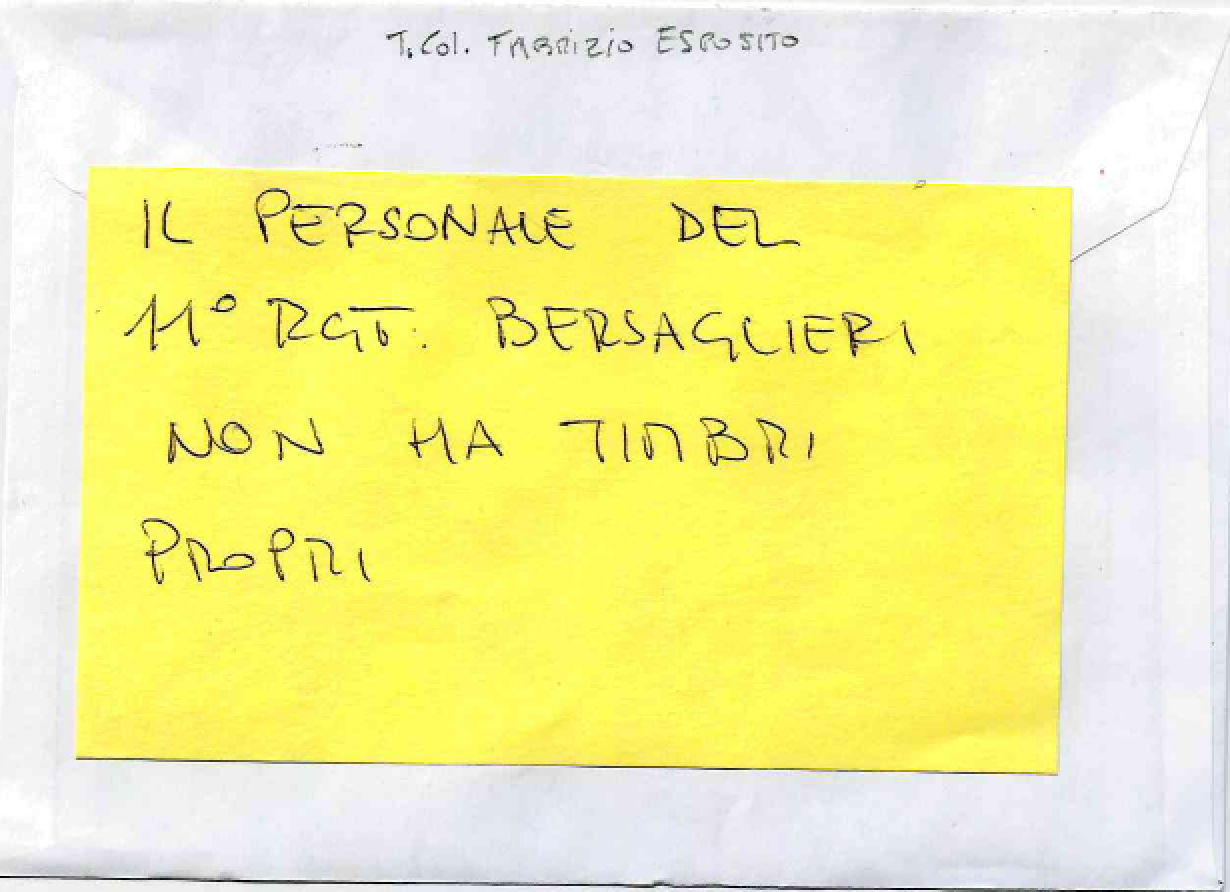 T. Col. FABRIZIO ESPOSITO
IL PERSONALE DEL
11° RGT. BERSAGLIERI
NON HA TIMBRI
PROPRI